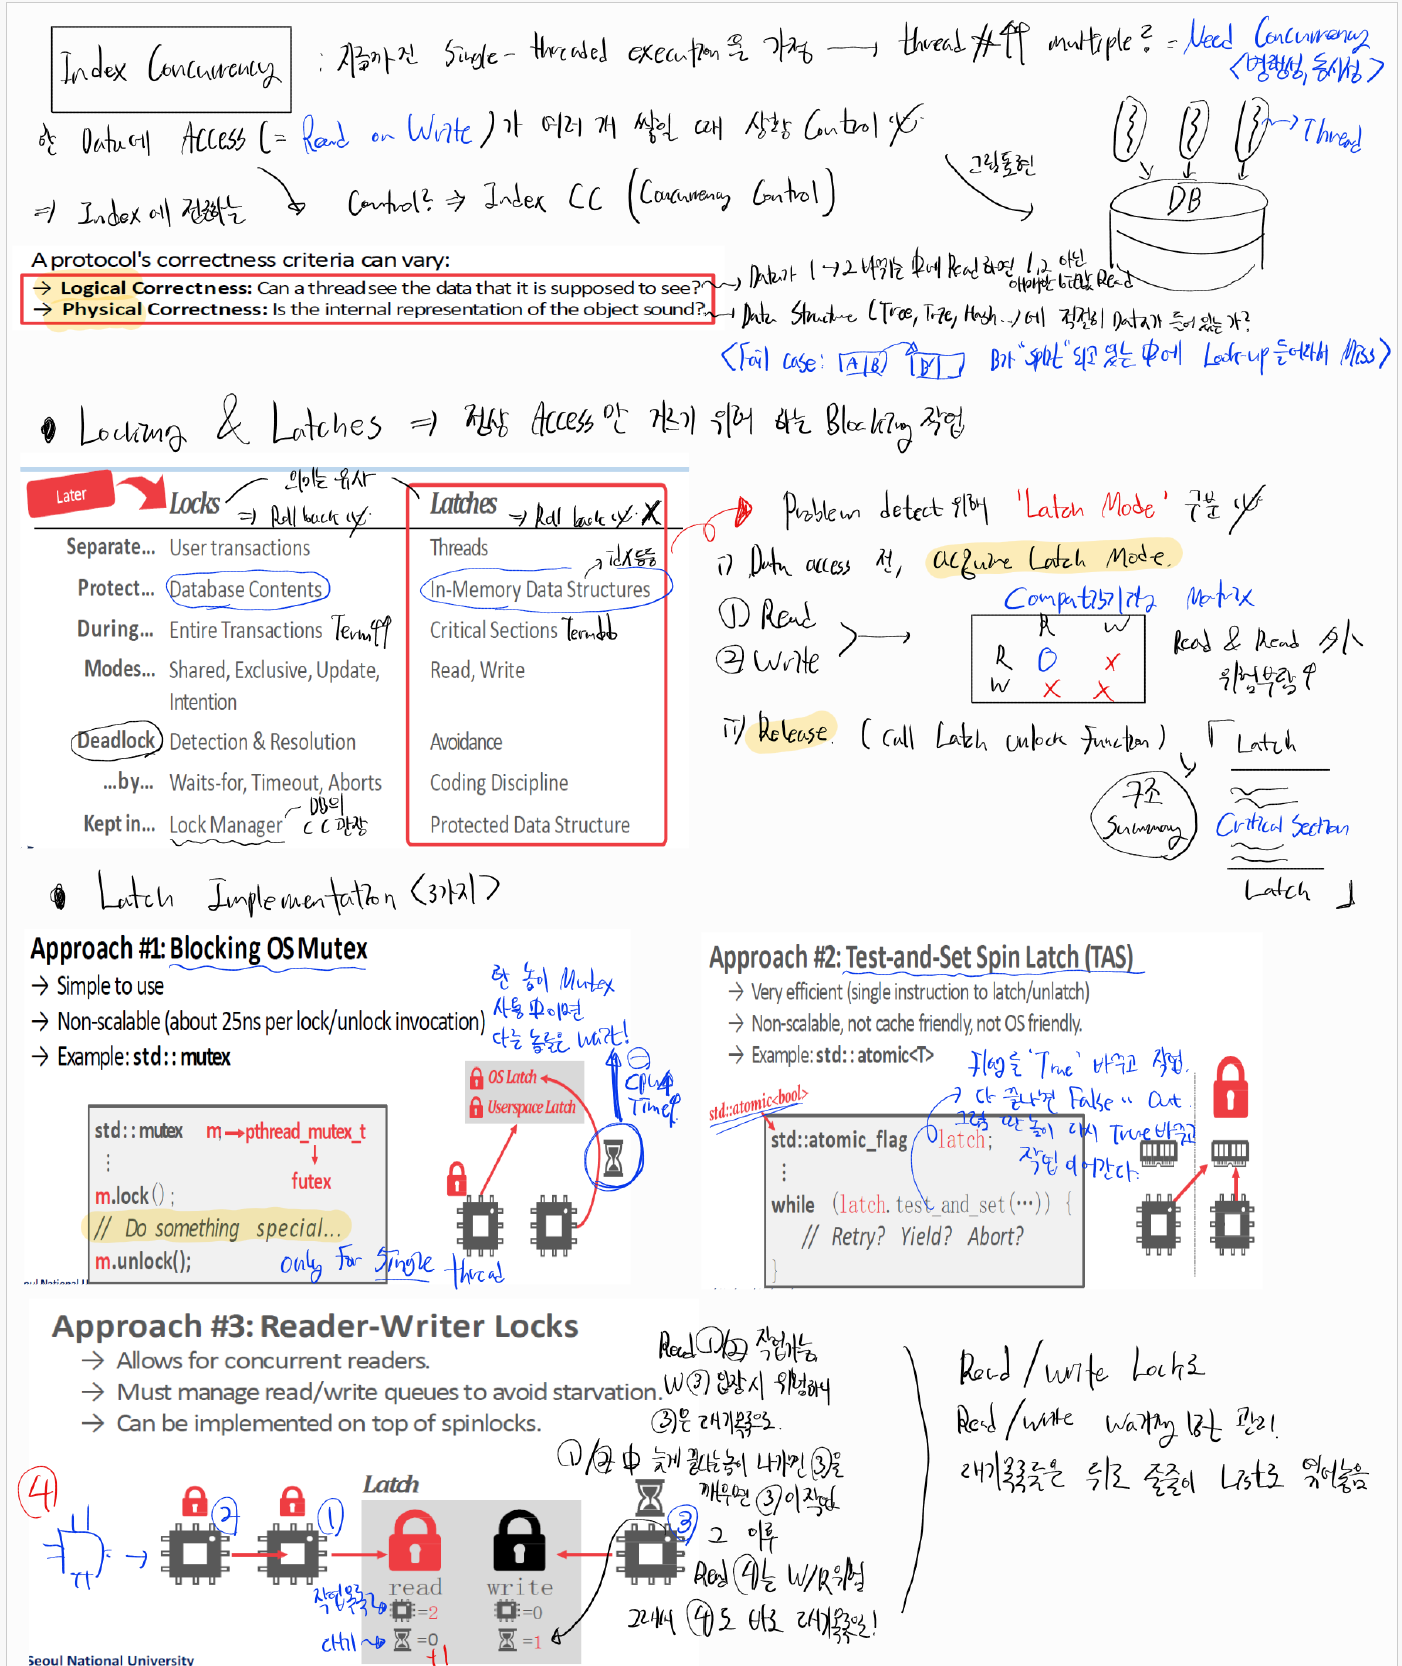 Index Concurrency : 지금까진 Single-threaded execution을 가정 → thread #↑↑ multiple? = Need Concurrency
<병행성, 동시성>
한 Data에 Access (= Read or Write)가 여러 개 쌓일 때 상황 Control
그림표현
Thread
DB
⇒ Index에 접근하는 Control? ⇒ Index CC (Concurrency Control)
A protocol's correctness criteria can vary:
→ Logical Correctness: Can a thread see the data that it is supposed to see?
Data가 1→2 바뀌는 中에 Read하면 1, 2 아닌 애매한 Read
→ Physical Correctness: Is the internal representation of the object sound?
Data Structure (Tree, Trie, Hash...)에 적절히 Data가 들어 있는가?
<Fail case: A B B B가 "split"되고 있는 中에 Look-up 들어와서 Miss>
• Locking & Latches ⇒ 정상 Access 안 위해 하는 Blocking 작업
Later
Locks 의미는 유사 Latches
⇒ Roll back ⇒ Roll back X
Separate... User transactions Threads
idx 등등
Protect... Database Contents In-Memory Data Structures
During... Entire Transactions Term↑↑ Critical Sections Term
Modes... Shared, Exclusive, Update, Intention Read, Write
Deadlock Detection & Resolution Avoidance
...by... Waits-for, Timeout, Aborts Coding Discipline
DB의 CC 관장
Kept in... Lock Manager Protected Data Structure
Problem detect 위해 'Latch Mode' 구분
i) Data access 전, acquire Latch Mode.
① Read
② Write
Matrix
R W
R O X
W X X
Read & Read 外
위험부담↑
ii) Release. (Call Latch Unlock Function)
구조 Summary
「 Latch
Critical Section
Latch 」
• Latch Implementation <3가지>
Approach #1: Blocking OS Mutex
→ Simple to use
→ Non-scalable (about 25ns per lock/unlock invocation)
→ Example: std::mutex
한 놈이 Mutex
사용 中이면
다른 놈들은 Wait!
CPU↑
Time↑
OS Latch
Userspace Latch
std::mutex m; → pthread_mutex_t
⋮
futex
m.lock();
// Do something special...
m.unlock();
only for Single thread
Approach #2: Test-and-Set Spin Latch (TAS)
→ Very efficient (single instruction to latch/unlatch)
→ Non-scalable, not cache friendly, not OS friendly.
→ Example: std::atomic<T>
'True' 바꾸고 작업.
다 끝나면 False Out.
그럼 딴 놈이 다시 True 바꾸고
작업 이어간다.
std::atomic<bool>
std::atomic_flag latch;
⋮
while (latch.test_and_set(…)) {
// Retry? Yield? Abort?
}
Approach #3: Reader-Writer Locks
→ Allows for concurrent readers.
→ Must manage read/write queues to avoid starvation.
→ Can be implemented on top of spinlocks.
Read ①/② 작업가능
W ③ 입장시 위험하니
③은 대기목록으로.
①/② 中 늦게 끝나는놈이 나가면 ③을
깨우면 ③이 작업
그 이후
Read ④는 W/R 위험
그래서 ④도 바로 대기목록으로!
Read/write Lock로
Read/write waiting 관리!
대기목록들은 뒤로 줄줄이 List로 엮어놓음
Latch
④ ② ① ③
read write
작업목록 =2 =0
대기 =0 =1
+1
Seoul National University